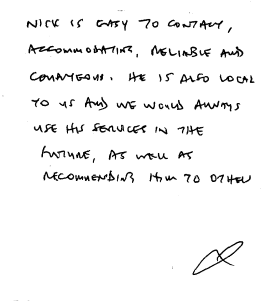 NICK IS EASY TO CONTACT,
ACCOMMODATING, RELIABLE AND
COURTEOUS. HE IS ALSO LOCAL
TO US AND WE WOULD ALWAYS
USE HIS SERVICES IN THE
FUTURE, AS WELL AS
RECOMMENDING HIM TO OTHERS